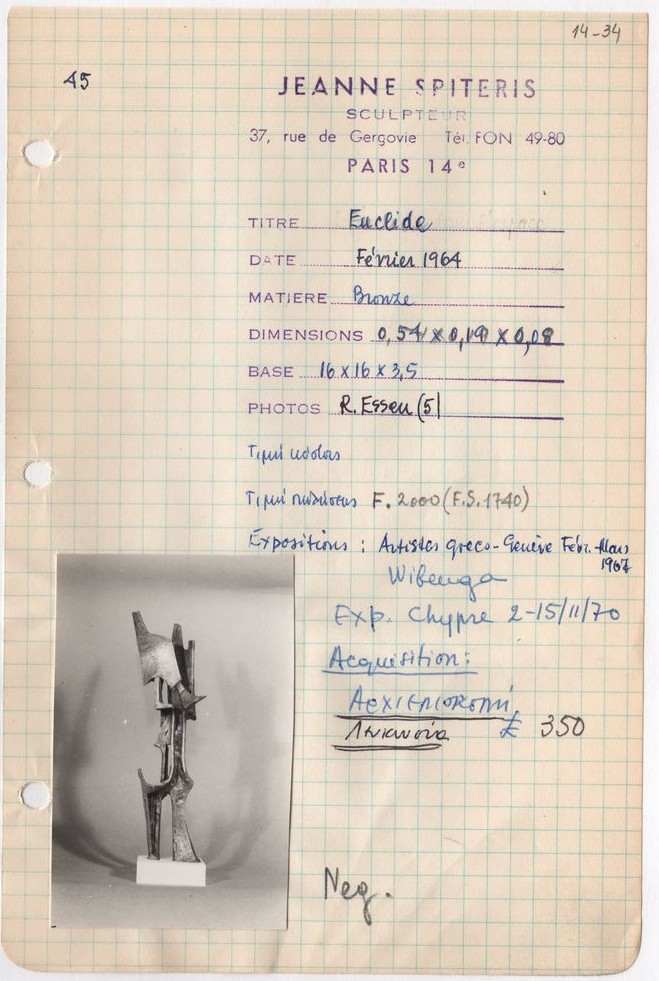 14-34
45
JEANNE SPITERIS
SCULPTEUR
37, rue de Gergovie Tél. FON 49-80
PARIS 14e
TITRE Euclide
DATE Février 1964
MATIERE Bronze
DIMENSIONS 0,54 x 0,19 x 0,08
BASE 16 x 16 x 3,5
PHOTOS R. Essen (5)
Τιμή κόστους
Τιμή πωλήσεως F. 2000 (F.S. 1740)
Expositions : Artistes greco-Genève Févr.-Mars
1967
Wibenga
Exp. Chypre 2-15/11/70
Acquisition:
Αρχιεπισκοπή
Λευκωσία £ 350
Neg.